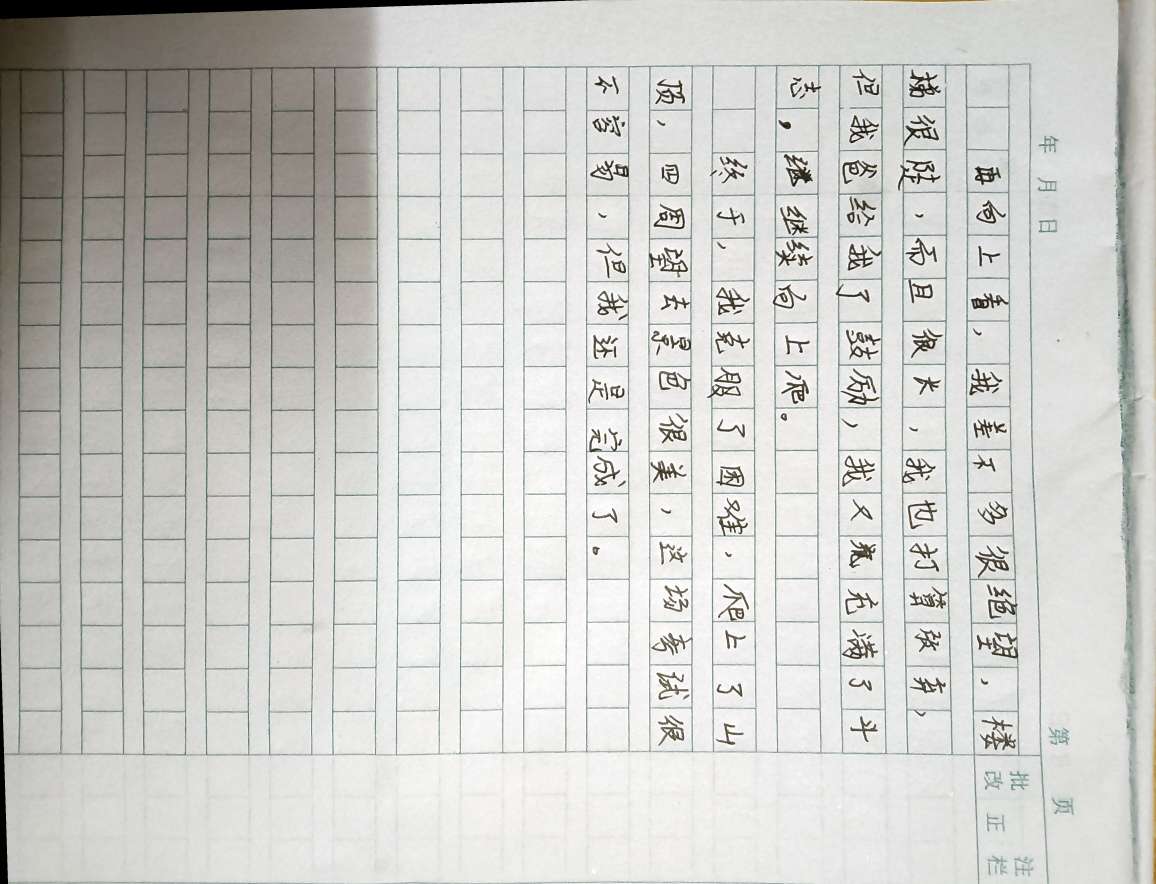 年 月 日 第 页
批 注
改 正 栏
再向上看，我差不多很绝望，楼
梯很陡，而且很大，我也打算放弃，
但我爸给我了鼓励，我又充满了斗
志，继继续向上爬。
终于，我克服了困难，爬上了山
顶，四周望去景色很美，这场考试很
不容易，但我还是完成了。